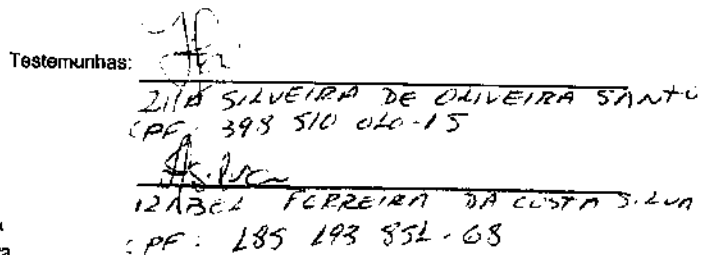 Testemunhas:
ZILA SILVEIRA DE OLIVEIRA SANTO
CPF: 398 510 010-15
IZABEL FERREIRA DA COSTA SILVA
CPF: 185 193 851-68